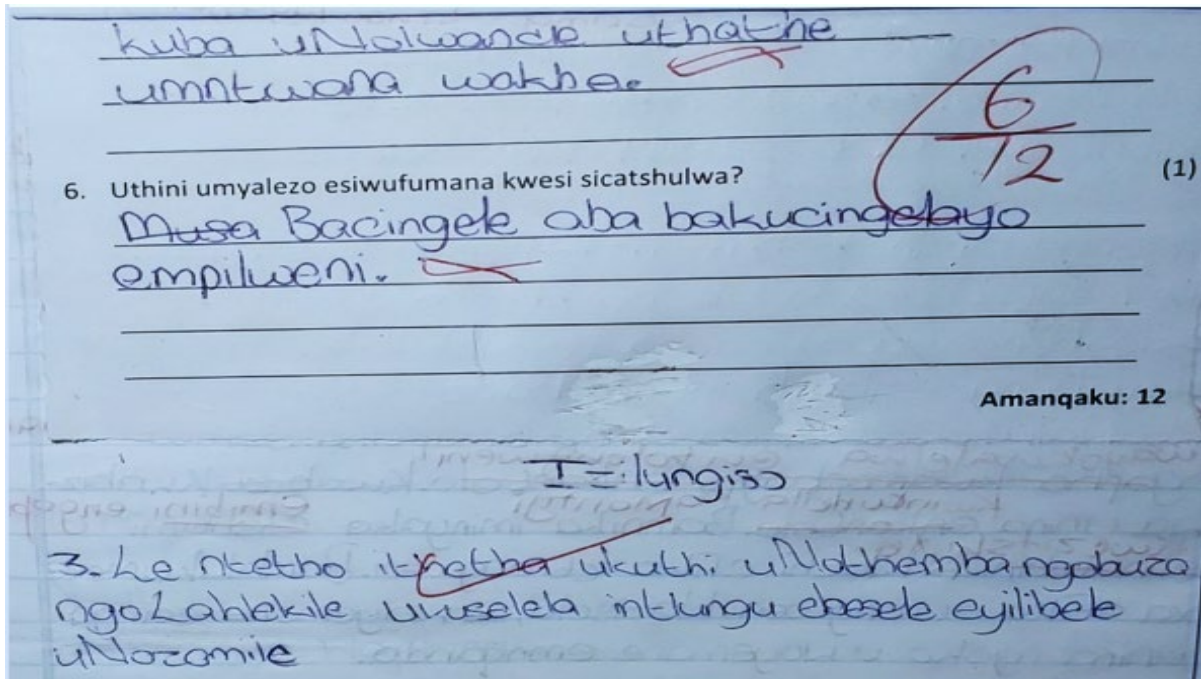 kuba uNolwande uthathe
umntwana wakhe.
6
12
6. Uthini umyalezo esiwufumana kwesi sicatshulwa? (1)
Musa Bacingele aba bakucingelayo
empilweni.
Amanqaku: 12
Izilungiso
3. Le ntetho ithetha ukuthi uNothemba ngobuza
ngoLahlekile uvuselela intlungu ebesele eyilibele
uNozomile